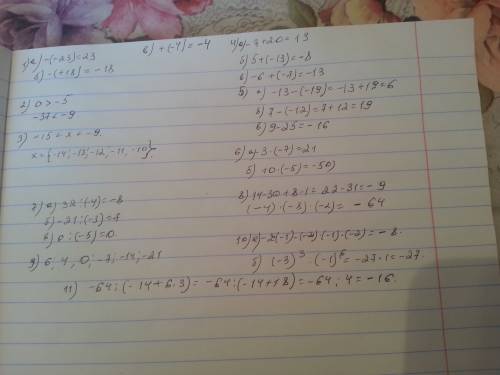 1) а) -(-23)=23
б) -(+18)=-18
в) +(-4)=-4
2) 0 > -5
-37 < -9
3) -15 < x < -9
x={-14,-13,-12,-11,-10}.
4) а) -7+20=13
б) 5+(-13)=-8
в) -6+(-7)=-13
5) а) -13-(-19)=-13+19=6
б) 7-(-12)=7+12=19
в) 9-25=-16
6) а) -3·(-7)=21
б) 10·(-5)=-50
7) а) -32:(4)=-8
б) -21:(-3)=7
в) 0:(-5)=0
8) 14-30+8-1=22-31=-9
(-4)·(-8)·(-2)=-64
9) 6; 4; 0; -7; -14; -21
10) а) -2(-1)·(-2)·(-1)·(-2)=-8.
б) (-3)³·(-1)⁶=-27·1=-27.
11) -64:(-14+6·3)=-64:(-14+18)=-64:4=-16.